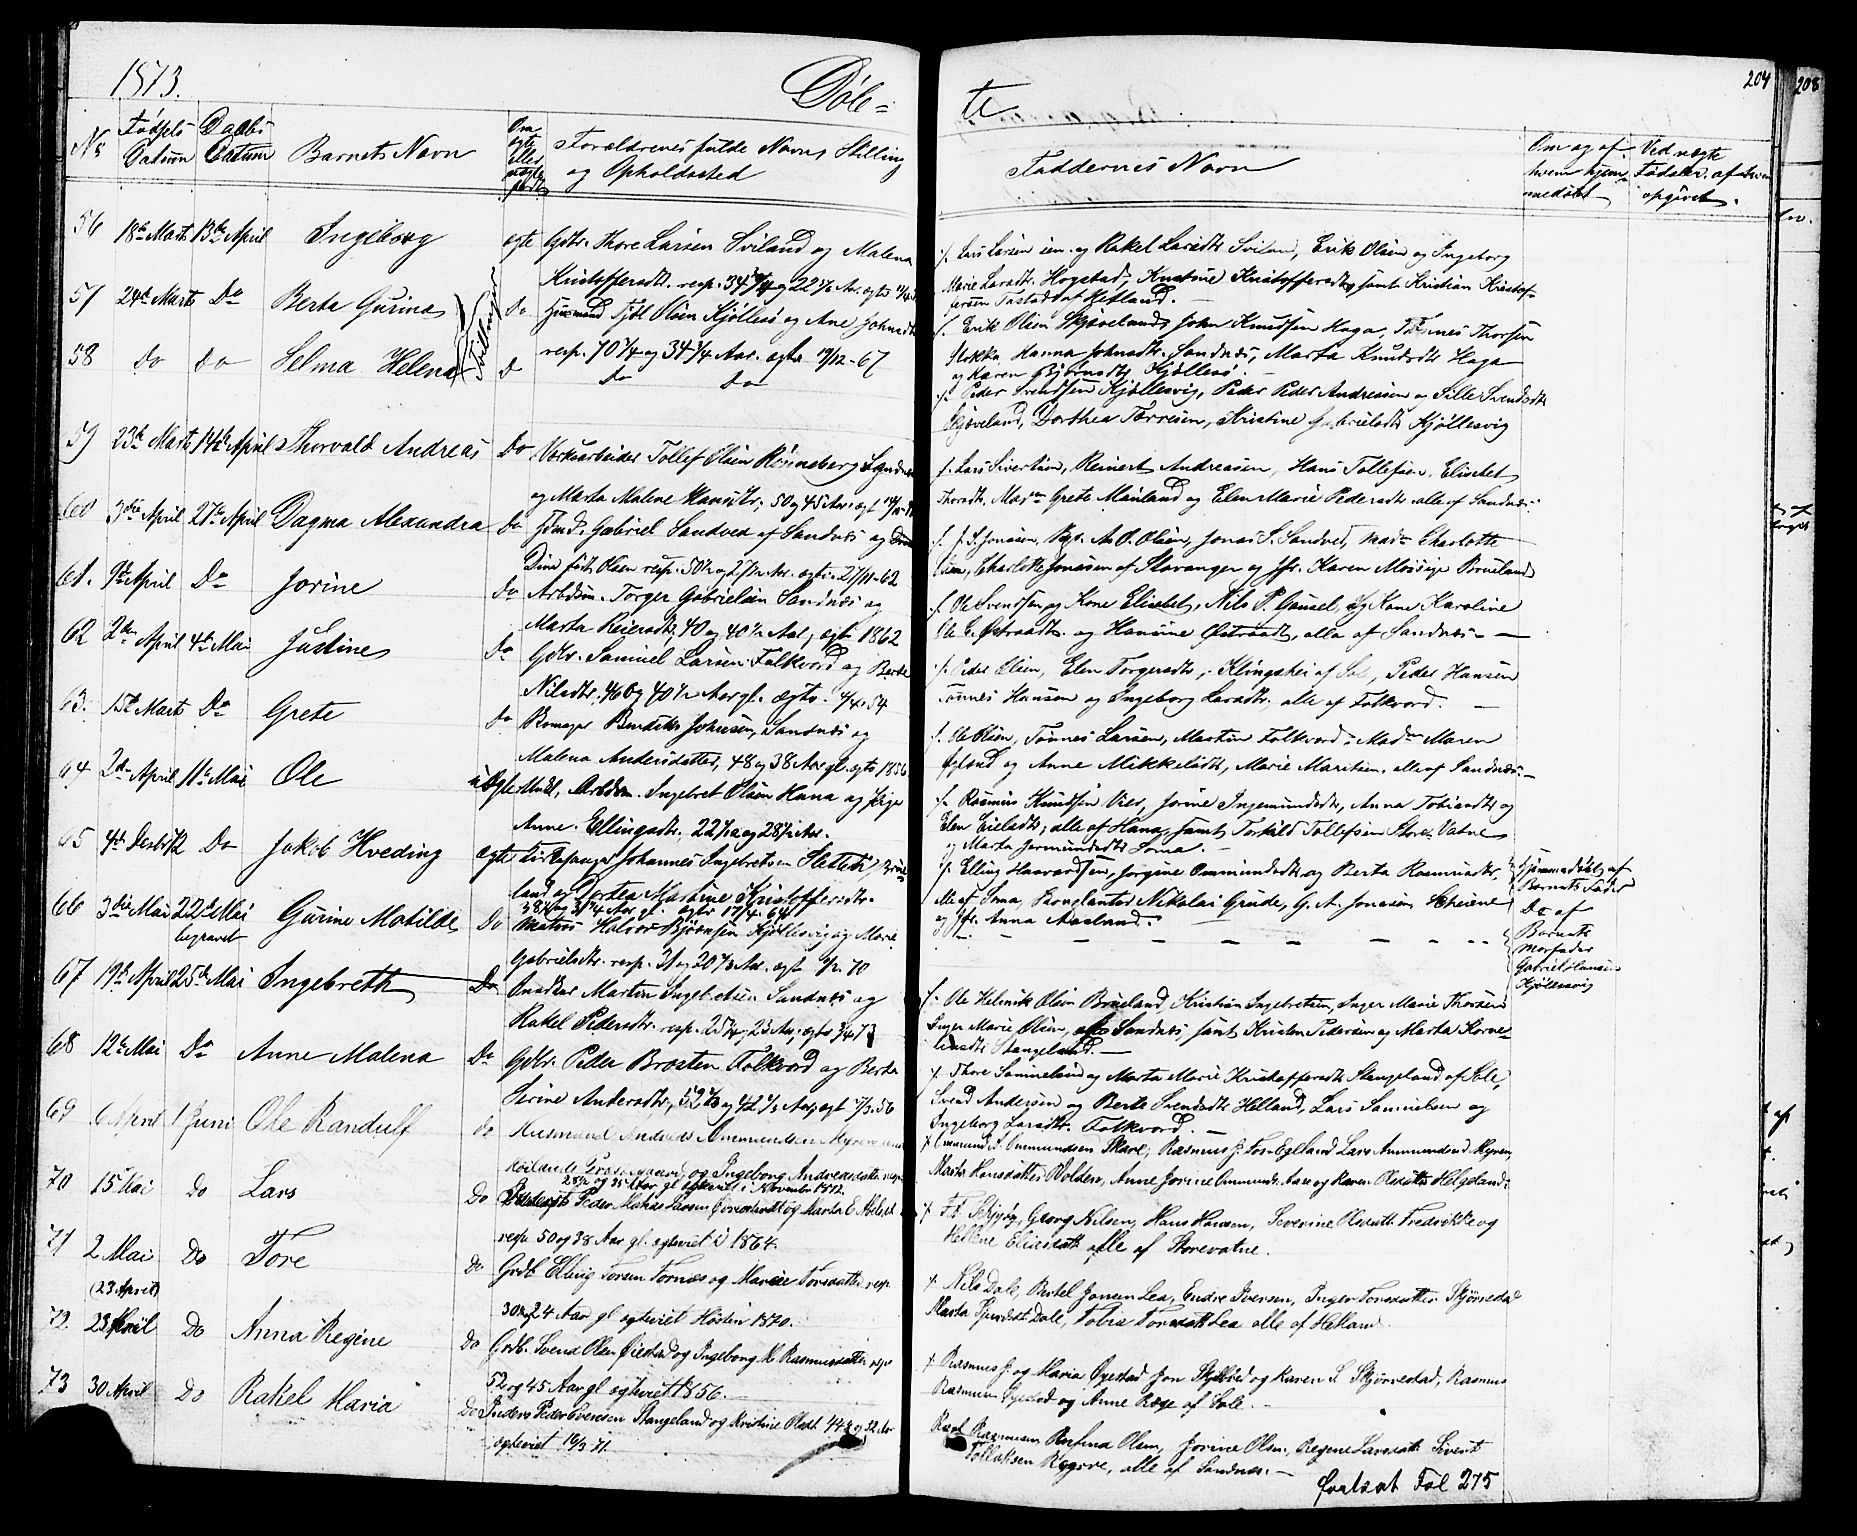 1873.
Døb=
te
204
208
No
Fødsels Datum
Daabs Datum
Barnets Navn
Om ægte eller uægte født
Forældrenes fulde Navn, Stilling og Opholdssted
Faddernes Navn
Om og af hvem hjemmedøbt
Ved uægte Fødsler. af hvem opgivet.
56 18de Marts 13de April Ingeborg ægte Gdbr. Thore Larsen Sviland og Malena
Kristoffersdtr. resp. 34 og 22 Ar. ægtev
/. Lars Larsen sen. og Rakel Larsdtr Sviland, Erik Olsen og Ingeborg
Marie Larsdtr. Hogstad, Kristine Kristoffersdtr, samt Kristian Kristof-
fersen Tastad af Hetland.
57 24de Marts Do Berta Gurina Do Huusmand Tjöl Olsen Kjöllesö og Ane Johnsdtr
resp. 70 1/4 og 34 1/4 Aar. ægtev 19/12-67
Tvillinger
/. Erik Olsen Skjæveland, John Knudsen Haga, Tönnes Thorsen
Hanna Johnsdtr. Sandnæs, Marta Knudsdtr Haga
og Karen Björnsdtr Kjöllesö.
58 Do Do Selma Helena D Do Do
/. Peder Svendsen Kjöllesvig, Peder Peder Andreasen og Sille Svendsdtr
Skjæveland, Dorthea Torresen, Kristine Gabrielsdtr Kjöllesvig
59 23de Marts 14de April Thorvald Andreas Do Værksarbeider Tollef Olsen Rönneberg Sandnæs
og Marta Malene Hansdtr; 50 og 45 Ar. ægt
/. Lars Sivertsen, Reinert Andreasen, Hans Tollefsen, Elisabet
Thorsdtr. Mad. Grete Mauland og Elen Marie Pedersdtr alle af Sandnæs.
60 3die April 27de April Dagma Alexandra Do Hmd. Gabriel Sandved af Sandnæs og
Dina født Olsen resp. 50 1/2 og 27 1/2 Ar. ægtv. 27/11-62
/. J. S. Jonasen, A. O. Olsen, Jonas S. Sandved, Mad. Charlotte
Charlotte Jonasen af Stavanger og Jfr. Karen Brueland
61. 9de April Do Jorine Do Arbdsm. Torger Gabrielsen Sandnæs og
Marta Reiersdtr 40 og 40 1/2 Aar, ægtv. 1862
/. Ole Svendsen og Kone Elisabet, Nils P. Gausel, og Kone Karoline
Ole E. Østraadt. og Hansine Østraadt, alle af Sandnæs
62 2den April 4de Mai Justine Do Gdbr. Samuel Larsen Folkvord og Berte
Nilsdtr. 46 og 40 1/2 Aar gl. ægtv. 4/4. 54
/. Peder Olsen, Elen Torgersdtr; Klingshei af Sole, Peder Hansen
Tönnes Hansen og Ingeborg Larsdtr. alle af Folkvord.
63. 15de Marts Do Grete Do Skomager Bendik Johnsen, Sandnæs og
Malena Andersdatter, 48 og 38 Aar gl. ægtv 1856
/. Ole Olsen, Tönnes Larsen, Martin Folkvord; Mad. Maren
Øglænd og Anne Mikkelsdtr, Marie Maritsen, alle af Sandnæs.
64 2den April 11te Mai Ole uægte Arbdsm. Ingebret Olsen Hana og Pige
Anne Ellingsdtr; 22 1/2 og 28 1/2 Ar.
/. Rasmus Knudsen Vier, Jorine Ingemundsdtr, Anna Tobiasdtr og
Elen Eielsdtr; alle af Hana, samt Torkild Tollefsen Store Vatne
og Marta Jermundsdtr Soma.
65 4de Desbr. 72 Do Jakob Hveding ægte Kirkesanger Johannes Ingebretsen Sletteb. Brue-
land og Dortea Martine Kristoffersdtr.
38 og 31 Aar gl. ægtv 17/4. 64
/. Elling Haavardsen, Jorgine Ommundsdtr og Berta Rasmusdtr,
alle af Soma, Provstantor Nikolai Grude, G. A. Jonasen, Scheiene
og Jfr. Anna Aasland.
Hjemmedøbt af Barnets Fader
66 3die Mai 22de Mai begravet Gurine Matilde Do Matros Halvor Björnsen Kjöllesvig og Marie
Gabrielsdtr. resp. 31 og 20 Aar. ægt 70
Do af Barnets Morfader Gabriel Hansen Kjöllesvig
67 19de April 25de Mai Ingebreth Do Snedker Martin Ingebretsen Sandnæs og
Rakel Pedersdtr. resp. 25; 23 Ar, ægtv 73
/. Ole Helmik Olsen Brueland, Kristian Ingebretsen, Inger Marie Thorsen
Inger Marie Olsen, alle Sandnæs, samt Kristen Pedersen og Marta Korne-
liusdtr Stangeland.
68 12te Mai Do Anne Malena Do Gdbr. Peder Brosten Folkvord og Berta
Serine Andersdtr, 52 og 42 Aar, ægt 56
/. Thore Sommeland og Marta Marie Kristoffersdtr Stangeland af Sole,
Svend Andersen og Berte Svendsdtr Helland, Lars Samuelsen og
Ingeborg Larsdtr. Folkvord.
69 6 April 1 Juni Ole Randulf do Husmand Andreas Ommundsen Myren
og Ingeborg Andreasdatter resp
25 og 35 Aar gl ægteviet i November 1872.
/ Ommund S. Ommundsen Skare, Rasmus J. Fos-Egeland Lars Ommundsen Myren,
Marta Hansdatter Rolden, Anne Jorine Ommunds. Aase og Karen Olsdatter Helgeland.
70 15 Mai Do Lars Do Peder Mathias Larsen og Marta E.
resp 50 og 38 Aar gl. ægteviet i 1864.
/ Georg Nilsen, Hans Hansen, Severine Olsdatt. Fredrikke og
Hellene Eliasdatt alle af Storevatne.
71 2 Mai (23 April) Do Tore Do Grdb Elling Torsen Tornes og Marie Torsdatter resp
30 og 24 Aar gl ægteviet Hösten 1870.
/ Nils Dale, Bertel Jonsen Lea, Endre Iversen, Inger Torsdatter Skjørestad
Marta Dale, Tobia Torsdatt Lea alle af Hetland.
72 23 April Do Anna Regine Do Grdb. Svend Olsen Øiestad og Ingeborg M. Rasmusdatter resp
52 og 45 Aar gl ægteviet 1856.
/ Rasmus J. og Maria Øyestad Jon Skjelbred og Karen S. Skjørestad, Rasmus
Rasmusen Øyestad og Anne Rege af Sole.
73 30 April Do Rakel Maria Do Inders Peder Svensen Stangeland og Kristine Olsdt 44 og 32 Aar
ægteviet 16/3 71.
Karl Rasmusen Rufina Olsen, Jorine Olsen, Regine Larsdatt. Sivert
Tollaksen Rygve, alle af Sandnæs.
Fortsat Fol 275